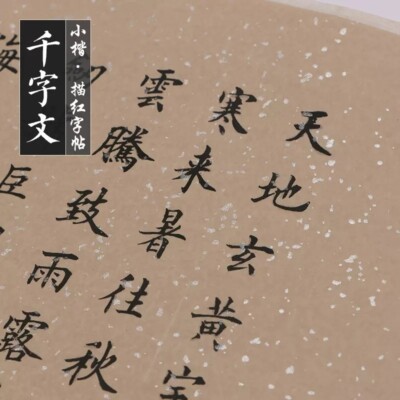 千字文
小楷·描红字帖
天地玄黄宇
寒来暑往秋
雲騰致雨露
海